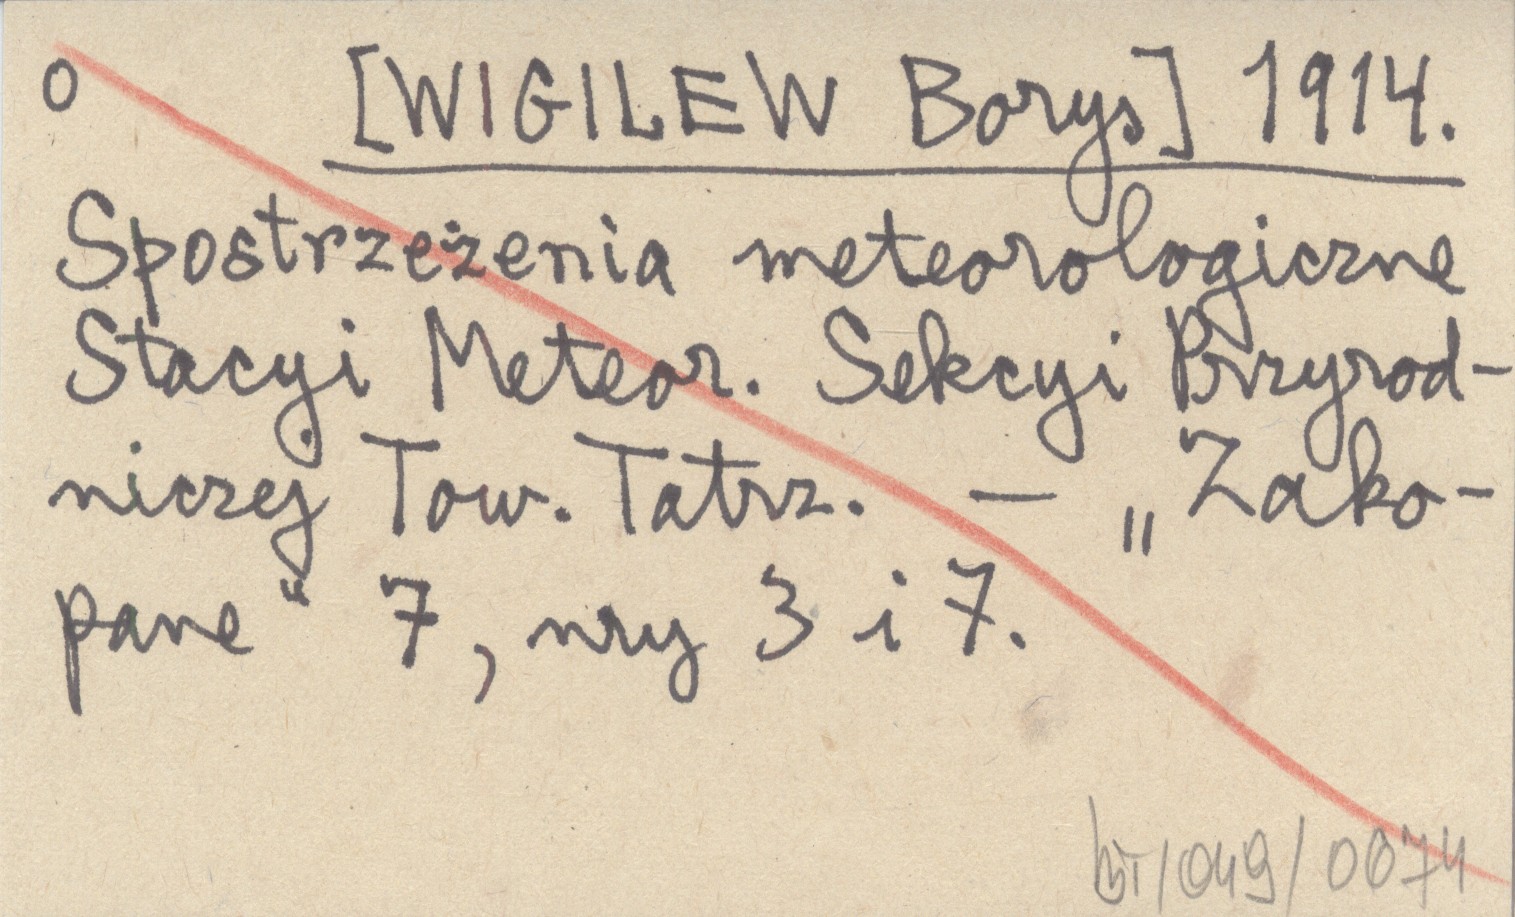 o [WIGILEW Borys] 1914.
Spostrzeżenia meteorologiczne
Stacyi Meteor. Sekcyi Przyrod-
niczej Tow. Tatrz. — „Zako-
pane“ 7, nry 3 i 7.
bT/049/0074